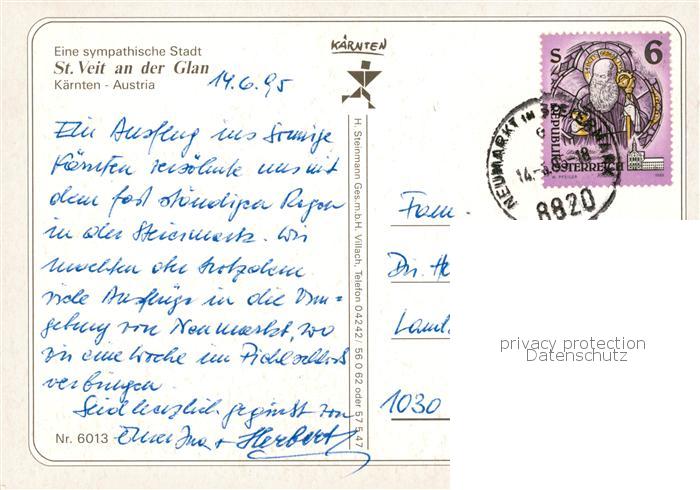 Eine sympathische Stadt
St. Veit an der Glan
Kärnten - Austria
14.6.95
KÄRNTEN
Ein Ausflug ins Sonnige
Kärnten versöhnte uns mit
dem fast ständigen Regen
in der Steiermark. Wir
machten aber trotzdem
viele Ausflüge in die Um=
gebung von Neumarkt, wo
wir eine Woche im Pichlschloss
verbringen.
Seid herzlich gegrüsst von
+ Herbert
Nr. 6013
H. Steinmann Ges.m.b.H. Villach, Telefon 04242/56 0 62 oder 57 5 47
S 6
REPUBLIK
ÖSTERREICH
NEUMARKT IN STEIERMARK
8820
Fam.
Dr. He
1030
privacy protection
Datenschutz